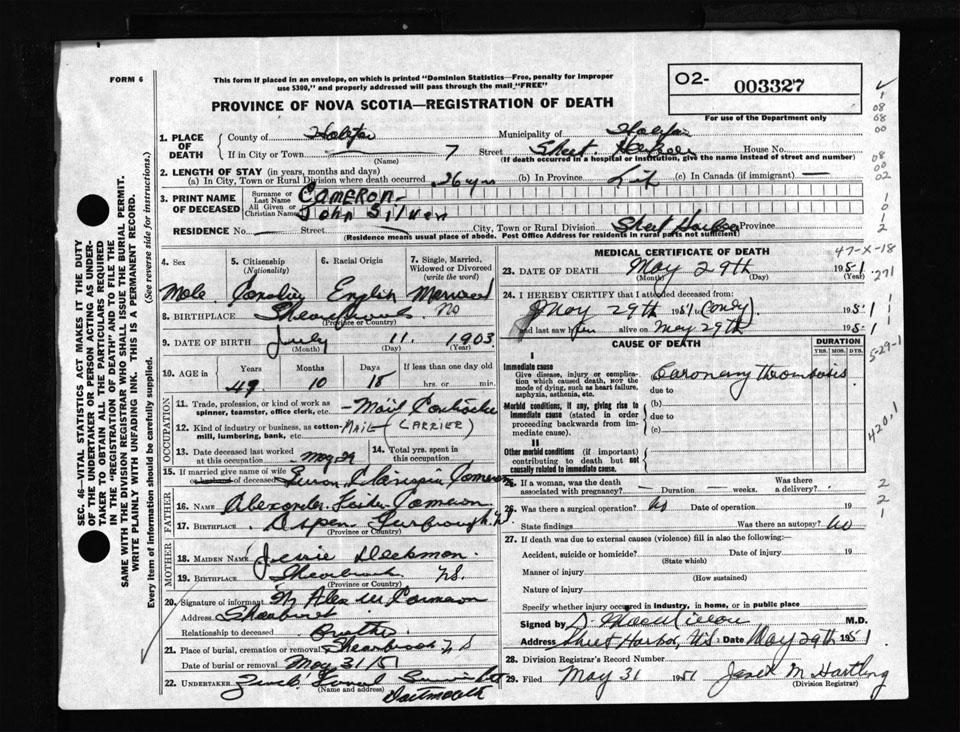 FORM 6
This form if placed in an envelope, on which is printed "Dominion Statistics—Free, penalty for improper
use $300," and properly addressed will pass through the mail "FREE"
O2- 003327
For use of the Department only
PROVINCE OF NOVA SCOTIA—REGISTRATION OF DEATH
SEC. 46—VITAL STATISTICS ACT MAKES IT THE DUTY
OF THE UNDERTAKER OR PERSON ACTING AS UNDER-
TAKER TO OBTAIN ALL THE PARTICULARS REQUIRED
IN THE "REGISTRATION OF DEATH" AND TO FILE THE
SAME WITH THE DIVISION REGISTRAR WHO SHALL ISSUE THE BURIAL PERMIT.
WRITE PLAINLY WITH UNFADING INK. THIS IS A PERMANENT RECORD.
Every item of information should be carefully supplied. (See reverse side for instructions.)
1. PLACE OF DEATH
County of Halifax Municipality of Halifax
If in City or Town 7 Street Sheet Harbour House No.
(Name) (If death occurred in a hospital or institution, give the name instead of street and number)
2. LENGTH OF STAY (in years, months and days)
(a) In City, Town or Rural Division where death occurred 26 yrs (b) In Province Life (c) In Canada (if immigrant) —
3. PRINT NAME OF DECEASED
Surname or Last Name CAMERON
All Given or Christian Names John Silver
RESIDENCE No. — Street — City, Town or Rural Division Sheet Harbour Province
(Residence means usual place of abode. Post Office Address for residents in rural parts not sufficient)
4. Sex 5. Citizenship (Nationality) 6. Racial Origin 7. Single, Married, Widowed or Divorced (write the word)
Male English Married
8. BIRTHPLACE NS
(Province or Country)
9. DATE OF BIRTH July 11. 1903
(Month) (Day) (Year)
10. AGE in Years Months Days If less than one day old
49 10 18 hrs. or min.
OCCUPATION
11. Trade, profession, or kind of work as spinner, teamster, office clerk, etc. — Mail
12. Kind of industry or business, as cotton-mill, lumbering, bank, etc. MAIL (CARRIER)
13. Date deceased last worked at this occupation May 29 14. Total yrs. spent in this occupation
15. If married give name of wife or husband of deceased Cameron
FATHER
16. NAME Alexander Cameron
17. BIRTHPLACE Aspen
(Province or Country)
MOTHER
18. MAIDEN NAME Jessie
19. BIRTHPLACE NS.
(Province or Country)
20. Signature of informant Alex Cameron
Address
Relationship to deceased Brother
21. Place of burial, cremation or removal NS
Date of burial or removal May 31/51
22. UNDERTAKER Funeral
(Name and address) Dartmouth
MEDICAL CERTIFICATE OF DEATH
47-X-18
23. DATE OF DEATH May 29th 1951
(Month) (Day) (Year)
24. I HEREBY CERTIFY that I attended deceased from:
May 29th 1951 (only) 1951
and last saw him alive on May 29th 1951
CAUSE OF DEATH
DURATION
YRS. MOS. DYS.
I
Immediate cause
Give disease, injury or complication which caused death, NOT the mode of dying, such as heart failure, asphyxia, asthenia, etc.
Coronary thrombosis
due to
Morbid conditions, if any, giving rise to immediate cause (stated in order proceeding backwards from immediate cause).
(b)
due to
(c)
II
Other morbid conditions (if important) contributing to death but not causally related to immediate cause.
5-29-1
420.1
25. If a woman, was the death associated with pregnancy? — Duration — weeks. Was there a delivery?
26. Was there a surgical operation? no Date of operation 19
State findings Was there an autopsy? no
27. If death was due to external causes (violence) fill in also the following:
Accident, suicide or homicide? Date of injury 19
(State which)
Manner of injury
(How sustained)
Nature of injury
Specify whether injury occurred in industry, in home, or in public place
Signed by M.D.
Address Sheet Harbor, N.S. Date May 29th 1951
28. Division Registrar's Record Number
29. Filed May 31 1951 M Hartling
(Division Registrar)